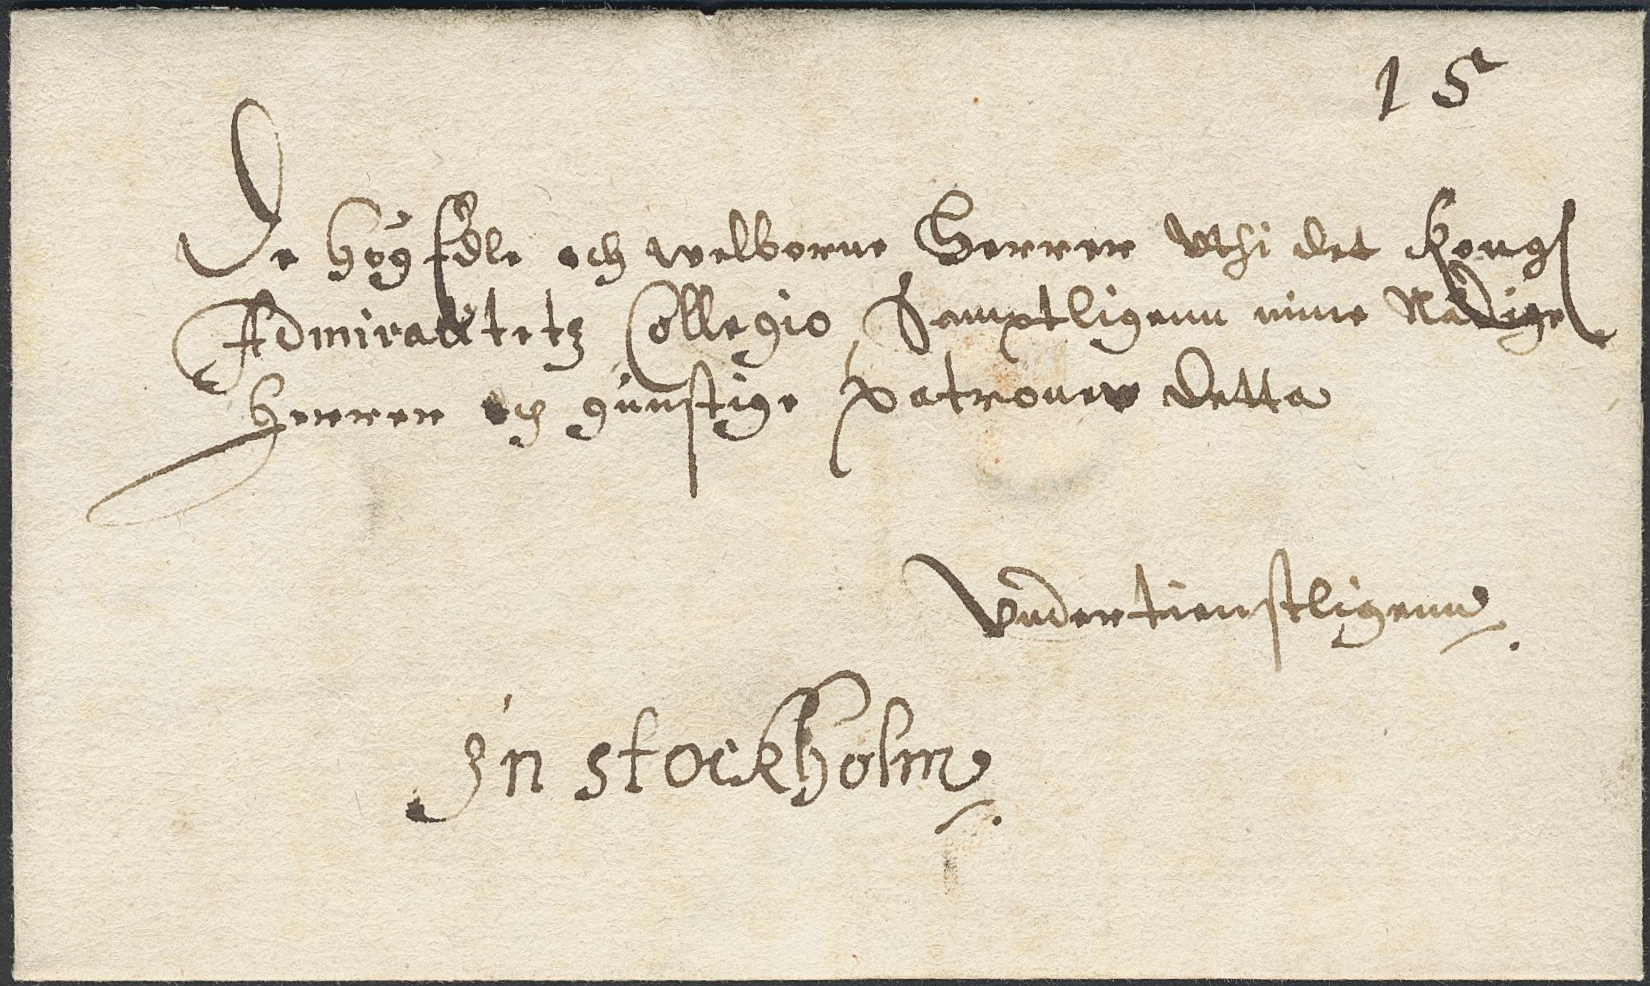 15
De HögEdle och welborne Herrer Uthi det Kongl
Admiralitetz Collegio, Samptligenn mine Nådige
Herrer och günstige Patroner Detta
Vndertienstligenn.
In Stockholm.